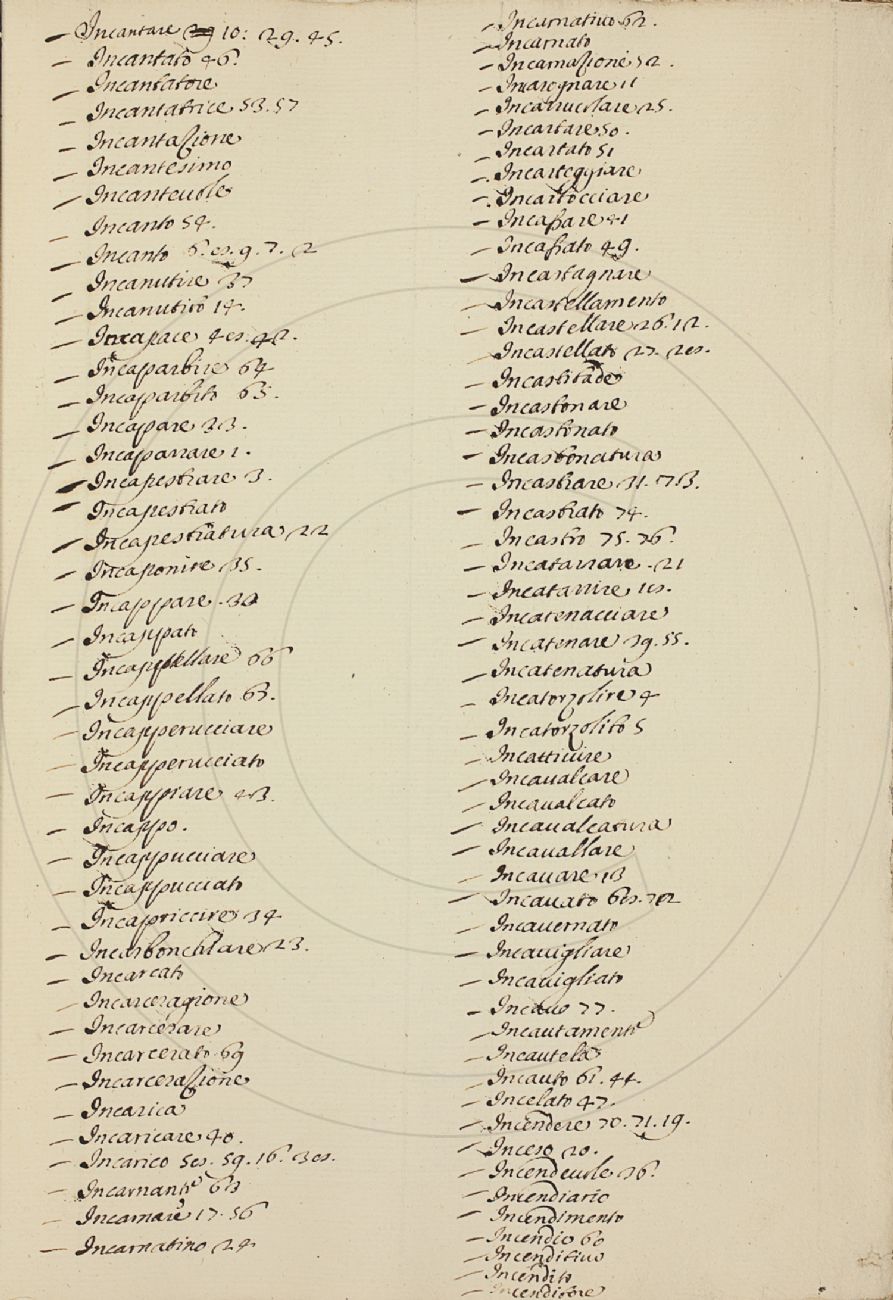 – Incantare 10: 29. 45.
– Incantato 46.
– Incantatore
– Incantatrice 53. 57
– Incantazione
– Incantesimo
– Incanteuole
– Incanto 54.
– Incanto
– Incanutire 37
– Incanutito 14.
– Incapace
– Incaparbire 64
– Incaparbito 65.
– Incapare
– Incaparrare 1.
– Incapestrare 3.
– Incapestrato
– Incapestratura 22
– Incaponire 35.
– Incappare
– Incappato
– Incappellare 66
– Incappellato 63.
– Incapperucciare
– Incapperucciato
– Incapprare 43.
– Incappo.
– Incappucciare
– Incappucciato
– Incapriccire 34
– Incarbonchiare 23.
– Incarcato
– Incarceragione
– Incarcerare
– Incarcerato 69
– Incarcerazione
– Incarica
– Incaricare 40.
– Incarico
– Incarnante
– Incarnare 17. 56
– Incarnatino 24
– Incarnatiuo 62.
– Incarnato
– Incarnazione 52.
– Incarognare 11
– Incarrucolare 25.
– Incartare 50.
– Incartato 51
– Incarteggiare
– Incartocciare
– Incassare 41
– Incassato 49.
– Incastagnare
– Incastellamento
– Incastellare 26. 12.
– Incastellato
– Incastitade
– Incastonare
– Incastonato
– Incastonatura
– Incastrare 31. 73.
– Incastrato 74.
– Incastro 75. 76.
– Incatarrare 21
– Incatarrire
– Incatenacciare
– Incatenare 39. 55.
– Incatenatura
– Incatorzolire 4
– Incatorzolito 5
– Incattiuire
– Incaualcare
– Incaualcato
– Incaualcatura
– Incauallare
– Incauare 13
– Incauato
– Incauernato
– Incauigliare
– Incauigliato
– Incauo 77.
– Incautamente
– Incautela
– Incauto 61. 44.
– Incelato 47.
– Incendere 70. 71. 19.
– Inceso 20.
– Incendeuole 36.
– Incendiario
– Incendimento
– Incendio 60
– Incenditiuo
– Incendito
– Incenditore